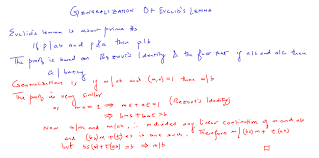 Generalization Of Euclid's Lemma
Euclid's lemma is about primes to
If p|ab and p∤a then p|b
The proof is based on Bezout's Identity & the fact that if c|a and a|c then
Generalization is, if m|ab and (m,a)=1 then m|b
The proof is very similar
(m,a)=1 ⇒ ms+at=1 (Bezout's Identity)
⇒ bms+bat=b
Now m|m and m|ab, ∴ m divides any linear combination of m and ab
and (bs)m + t(ab) is one such. Therefore m|(bs)m + t(ab)
but bs(m)+t(ab)=b ⇒ m|b